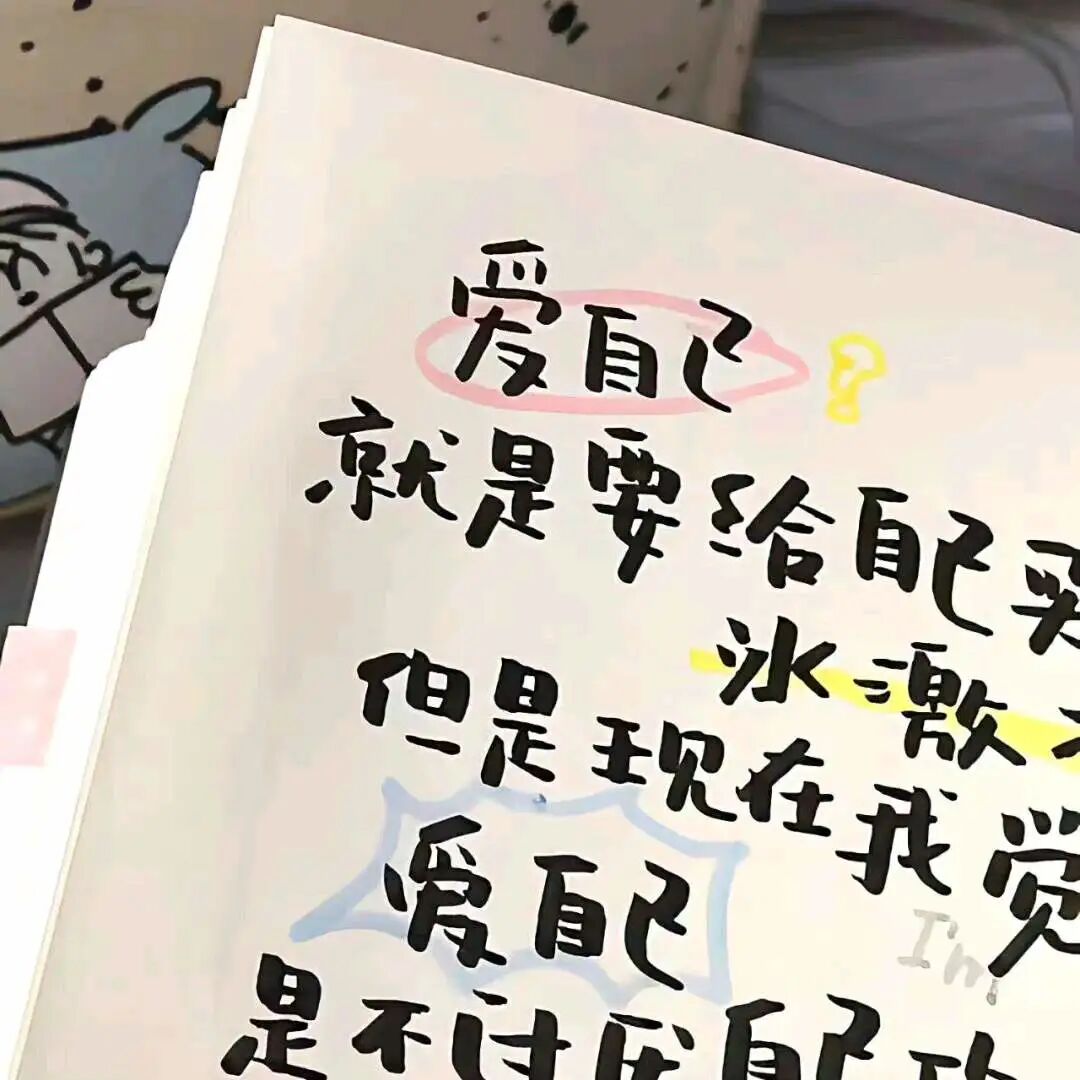 爱自己?
就是要给自己买
冰激
但是现在我觉
爱自己
I'm
是不过